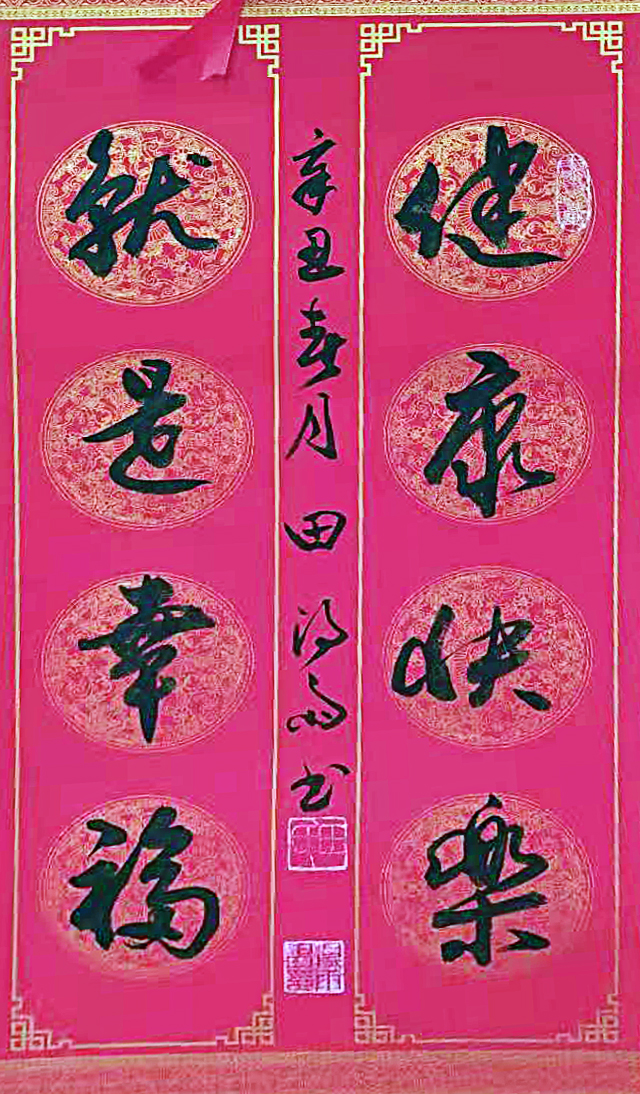 健康快樂
就是幸福
辛丑春月田
书